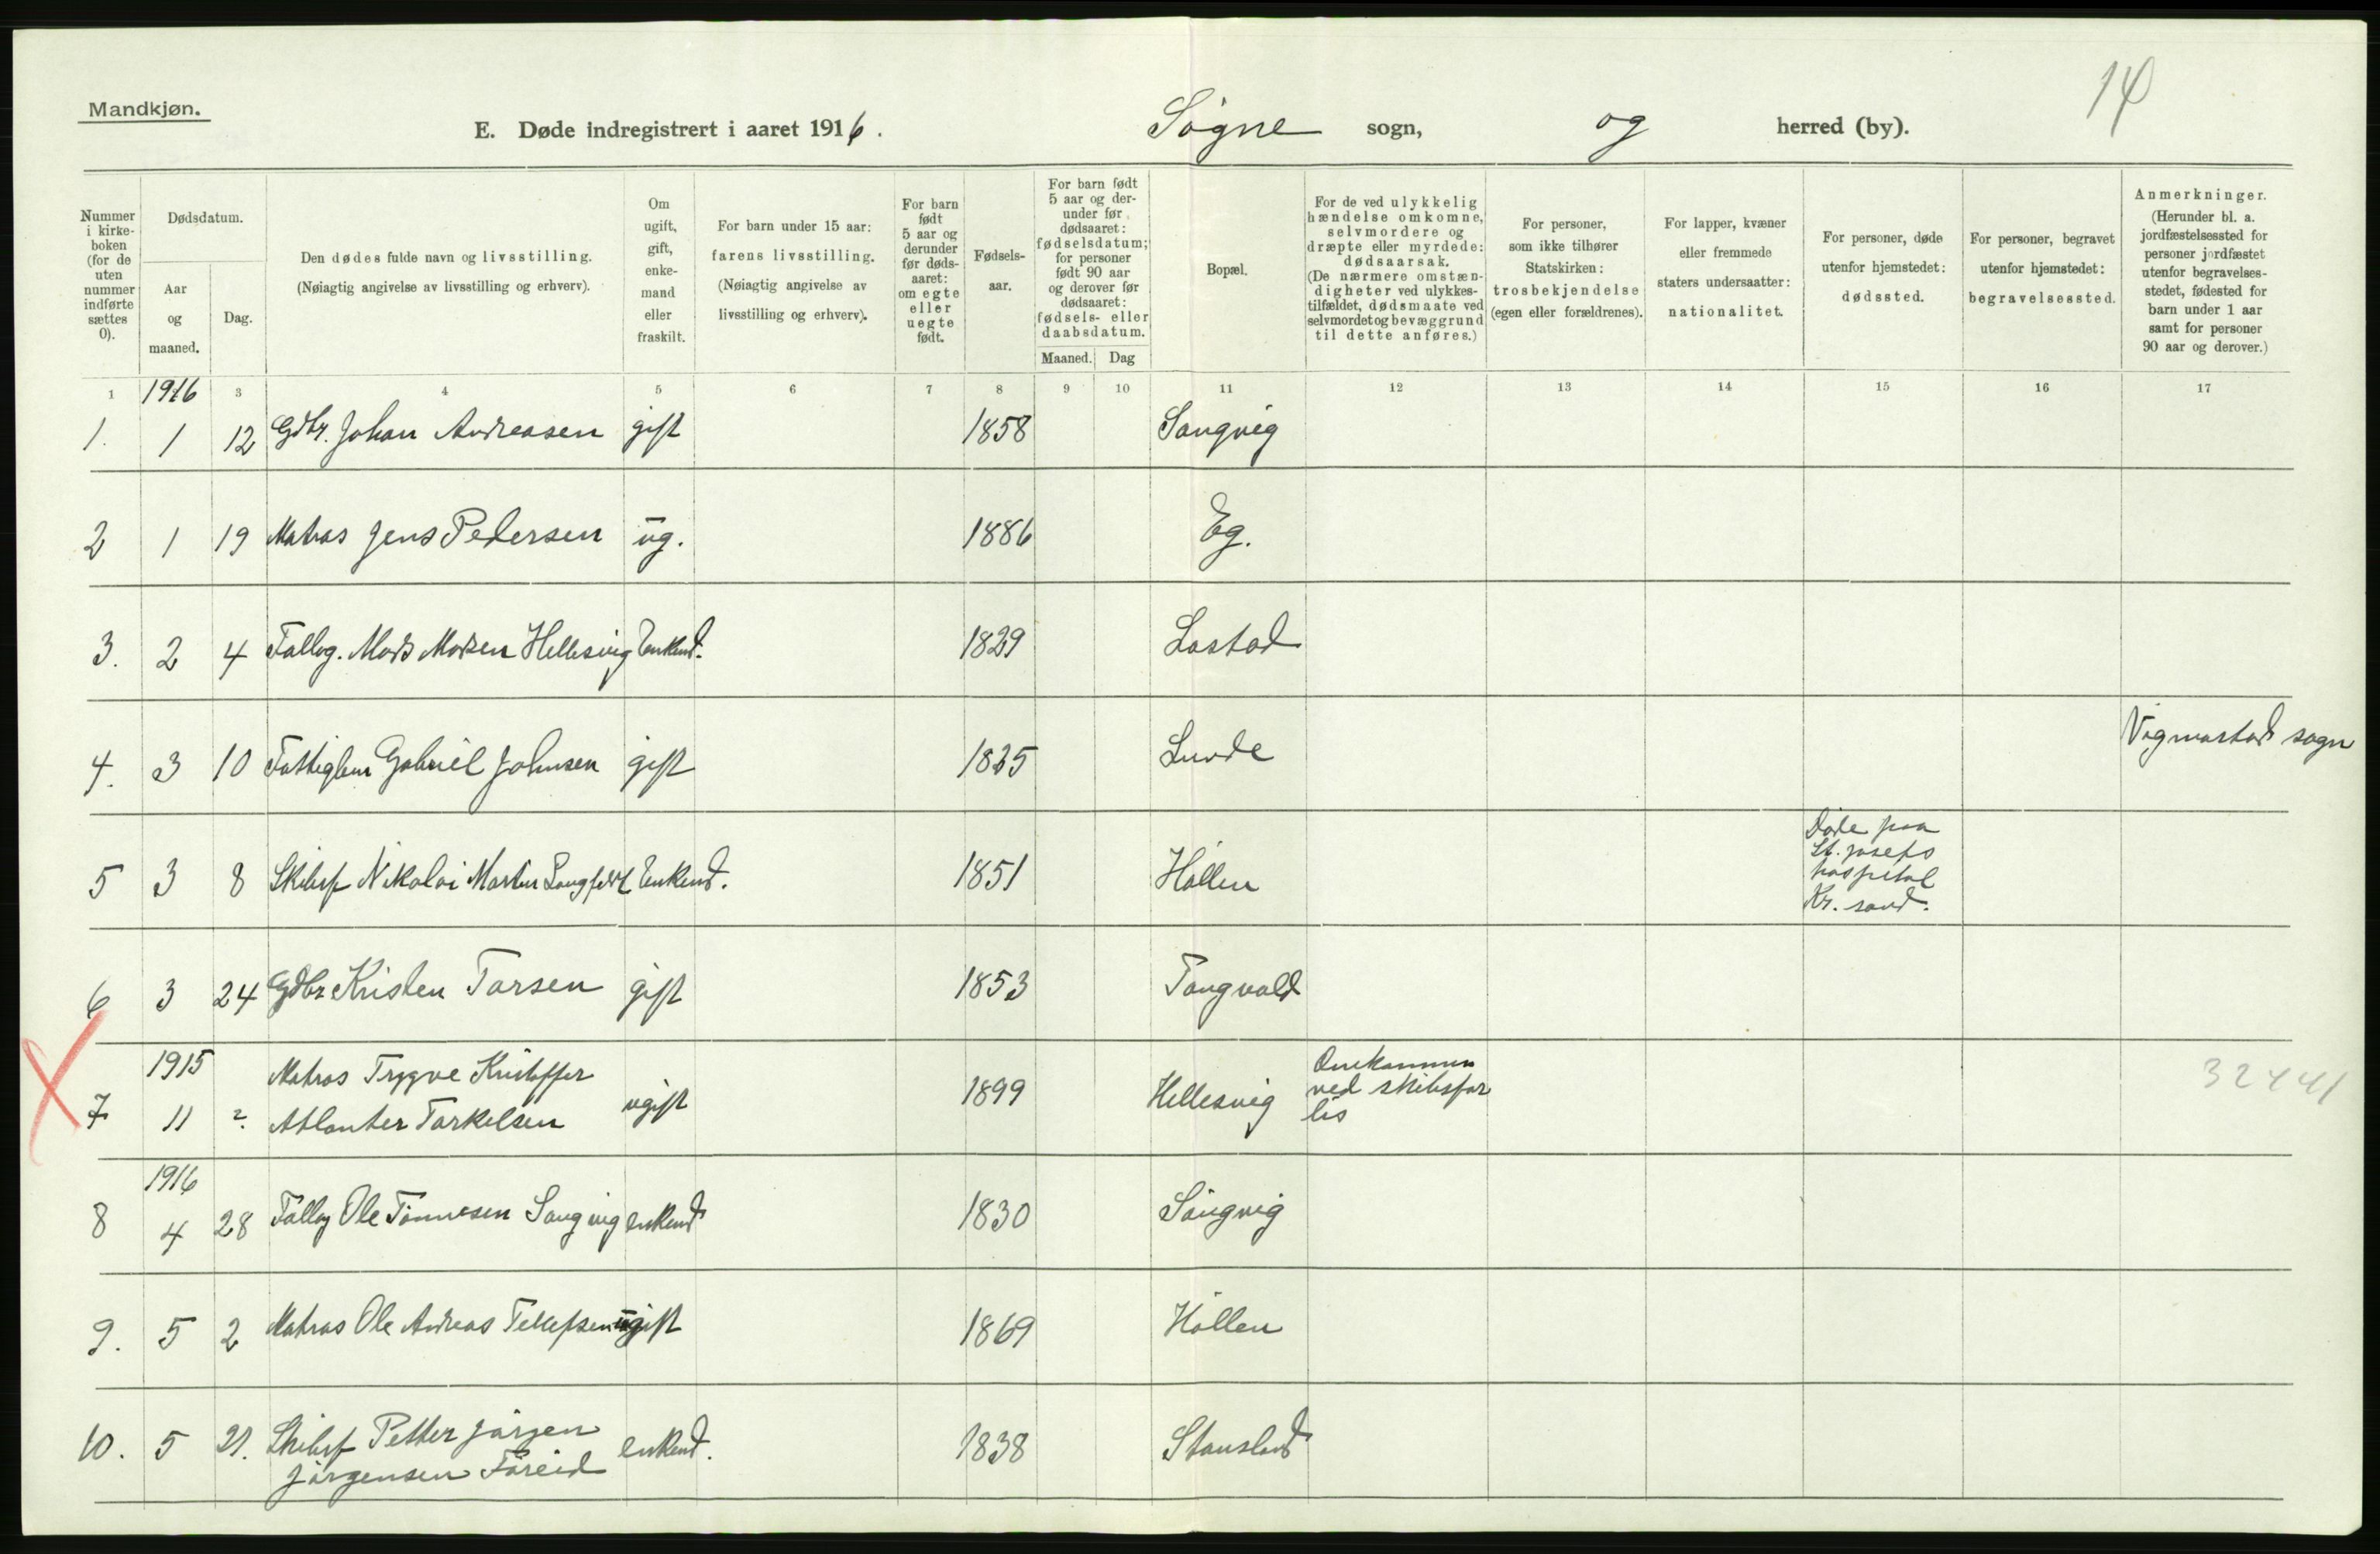 Mandkjøn.
14
E. Døde indregistrert i aaret 1916. Søgne sogn, og herred (by).
Nummer i kirkeboken (for de uten nummer indførte sættes 0).
Dødsdatum.
Aar og maaned.
Dag.
Den dødes fulde navn og livsstilling.
(Nøiagtig angivelse av livsstilling og erhverv).
Om ugift, gift, enkemand eller fraskilt.
For barn under 15 aar:
farens livsstilling.
(Nøiagtig angivelse av livsstilling og erhverv).
For barn født 5 aar og derunder før dødsaaret: om egte eller uegte født.
Fødselsaar.
For barn født 5 aar og derunder før dødsaaret: fødselsdatum; for personer født 90 aar og derover før dødsaaret: fødsels- eller daabsdatum.
Maaned. Dag
Bopæl.
For de ved ulykkelig hændelse omkomne, selvmordere og dræpte eller myrdede: dødsaarsak.
(De nærmere omstændigheter ved ulykkestilfældet, dødsmaate ved selvmordet og bevæggrund til dette anføres.)
For personer, som ikke tilhører Statskirken: trosbekjendelse (egen eller forældrenes).
For lapper, kvæner eller fremmede staters undersaatter: nationalitet.
For personer, døde utenfor hjemstedet: dødssted.
For personer, begravet utenfor hjemstedet: begravelsessted.
Anmerkninger.
(Herunder bl. a. jordfæstelsessted for personer jordfæstet utenfor begravelsesstedet, fødested for barn under 1 aar samt for personer 90 aar og derover.)
1 1916 3 4 5 6 7 8 9 10 11 12 13 14 15 16 17
1. 1 12 Gdbr. Johan Andreasen gift 1858 Sangvig
2 1 19 Matros Jens Pedersen ug. 1886 Eg.
3. 2 4 Follog. Mads Madsen Hellesvig Enkemd. 1829 Lastad
4. 3 10 Fattiglem Gabriel Johnsen gift 1835 Lunde Vigmostad sogn
5 3 8 Skibsf Nikolai Martin Langfeldt Enkemd. 1851 Høllen
Døde paa
St. Josefs
hospital
Kr. sand.
6 3 24 Gdbr Kristen Torsen gift 1853 Tangvald
1915
7 11 ? Matros Trygve Kristoffer
Atlanter Torkelsen ugift 1899 Hellesvig
Omkommen
ved skibsfor
lis
32441
1916
8 4 28 Follog Ole Tønnesen Sangvig enkemd 1830 Sangvig
9. 5 2 Matros Ole Andreas Tellefsen ugift 1869 Høllen
10. 5 21. Skibsf Petter Jørgen
Jørgensen Føreid enkemd. 1838 Stausland